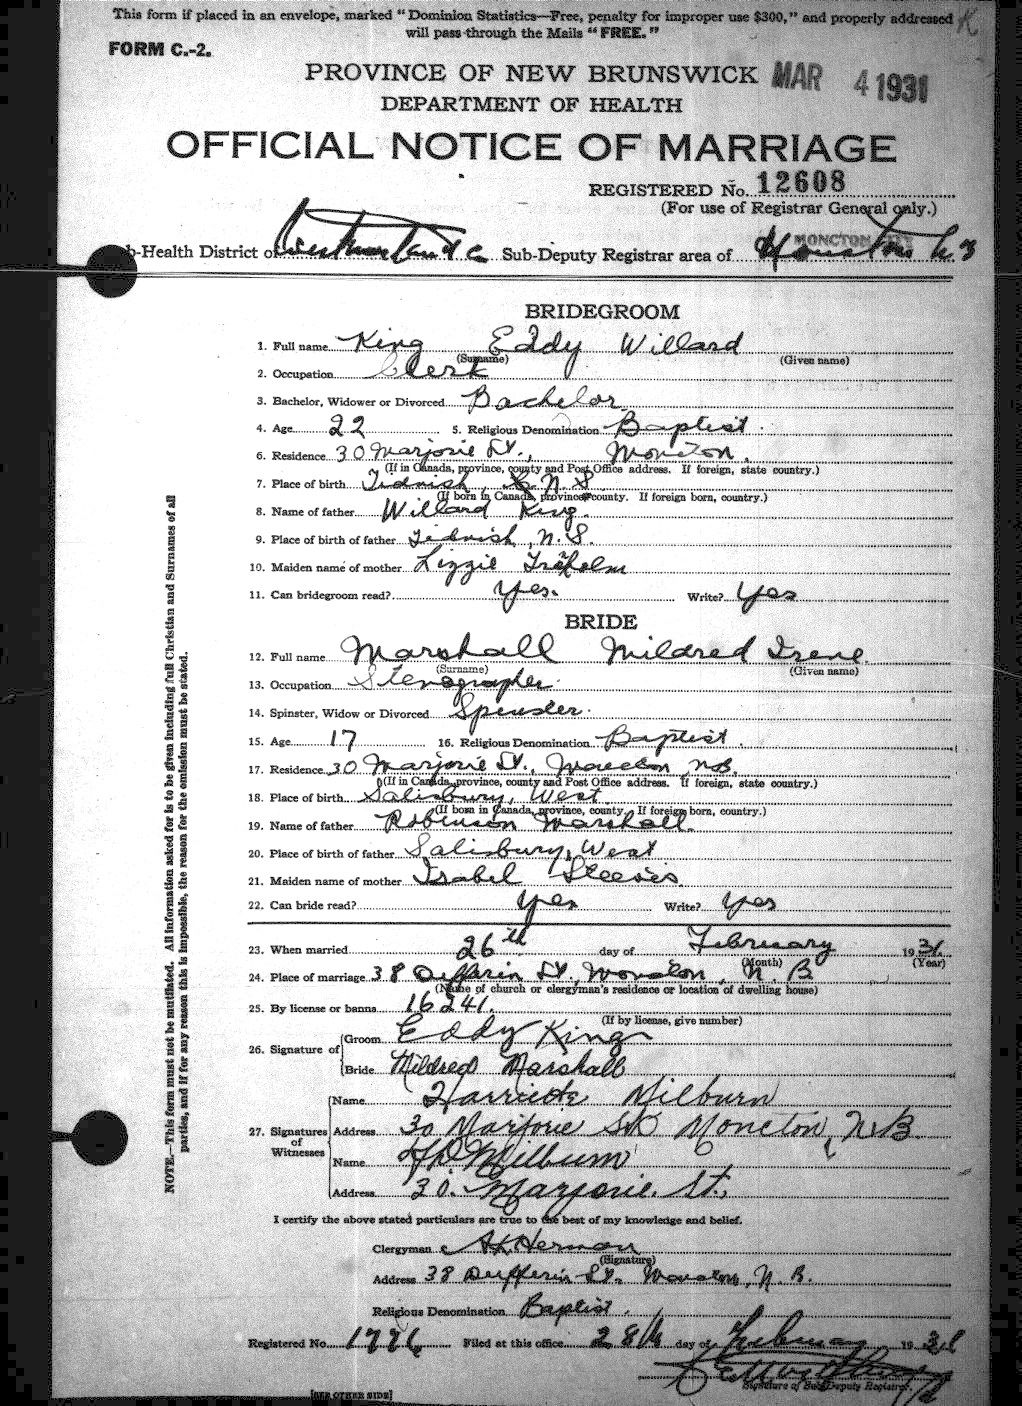 This form if placed in an envelope, marked "Dominion Statistics—Free, penalty for improper use $300," and properly addressed
will pass through the Mails "FREE."
K
FORM C.-2.
PROVINCE OF NEW BRUNSWICK MAR 4 1931
DEPARTMENT OF HEALTH
OFFICIAL NOTICE OF MARRIAGE
REGISTERED No. 12608
(For use of Registrar General only.)
MONCTON CITY
b-Health District of Westmorland Co Sub-Deputy Registrar area of Moncton N.B
BRIDEGROOM
1. Full name King Eddy Willard
(Surname) (Given name)
2. Occupation Clerk
3. Bachelor, Widower or Divorced Bachelor
4. Age 22 5. Religious Denomination Baptist.
6. Residence 30 Marjorie St., Moncton.
(If in Canada, province, county and Post Office address. If foreign, state country.)
7. Place of birth Tidnish, N.S.
(If born in Canada, province, county. If foreign born, country.)
8. Name of father Willard King.
9. Place of birth of father Tidnish, N.S.
10. Maiden name of mother Lizzie Treholm
11. Can bridegroom read? Yes. Write? Yes
BRIDE
12. Full name Marshall Mildred Irene.
(Surname) (Given name)
13. Occupation Stenographer.
14. Spinster, Widow or Divorced Spinster.
15. Age 17 16. Religious Denomination Baptist.
17. Residence 30 Marjorie St., Moncton, N.B.
(If in Canada, province, county and Post Office address. If foreign, state country.)
18. Place of birth Salisbury, West
(If born in Canada, province, county. If foreign born, country.)
19. Name of father Robinson Marshall.
20. Place of birth of father Salisbury, West
21. Maiden name of mother Isabel Steeves.
22. Can bride read? Yes Write? Yes
23. When married 26th day of February 1931.
(Month) (Year)
24. Place of marriage 38 Dufferin St., Moncton, N.B
(Name of church or clergyman's residence or location of dwelling house)
25. By license or banns 16241.
(If by license, give number)
26. Signature of Groom Eddy King
Bride Mildred Marshall
27. Signatures of Witnesses Name Harriette Milburn
Address 30 Marjorie St Moncton, N.B.
Name Milburn
Address 30. Marjorie St.,
I certify the above stated particulars are true to the best of my knowledge and belief.
Clergyman Herman
(Signature)
Address 38 Dufferin St. Moncton, N.B.
Religious Denomination Baptist.
Registered No. 1776 Filed at this office 28th day of February 1931
Signature of Sub-Deputy Registrar.
[SEE OTHER SIDE]
NOTE.—This form must not be mutilated. All information asked for is to be given including full Christian and Surnames of all
parties, and if for any reason this is impossible, the reason for the omission must be stated.